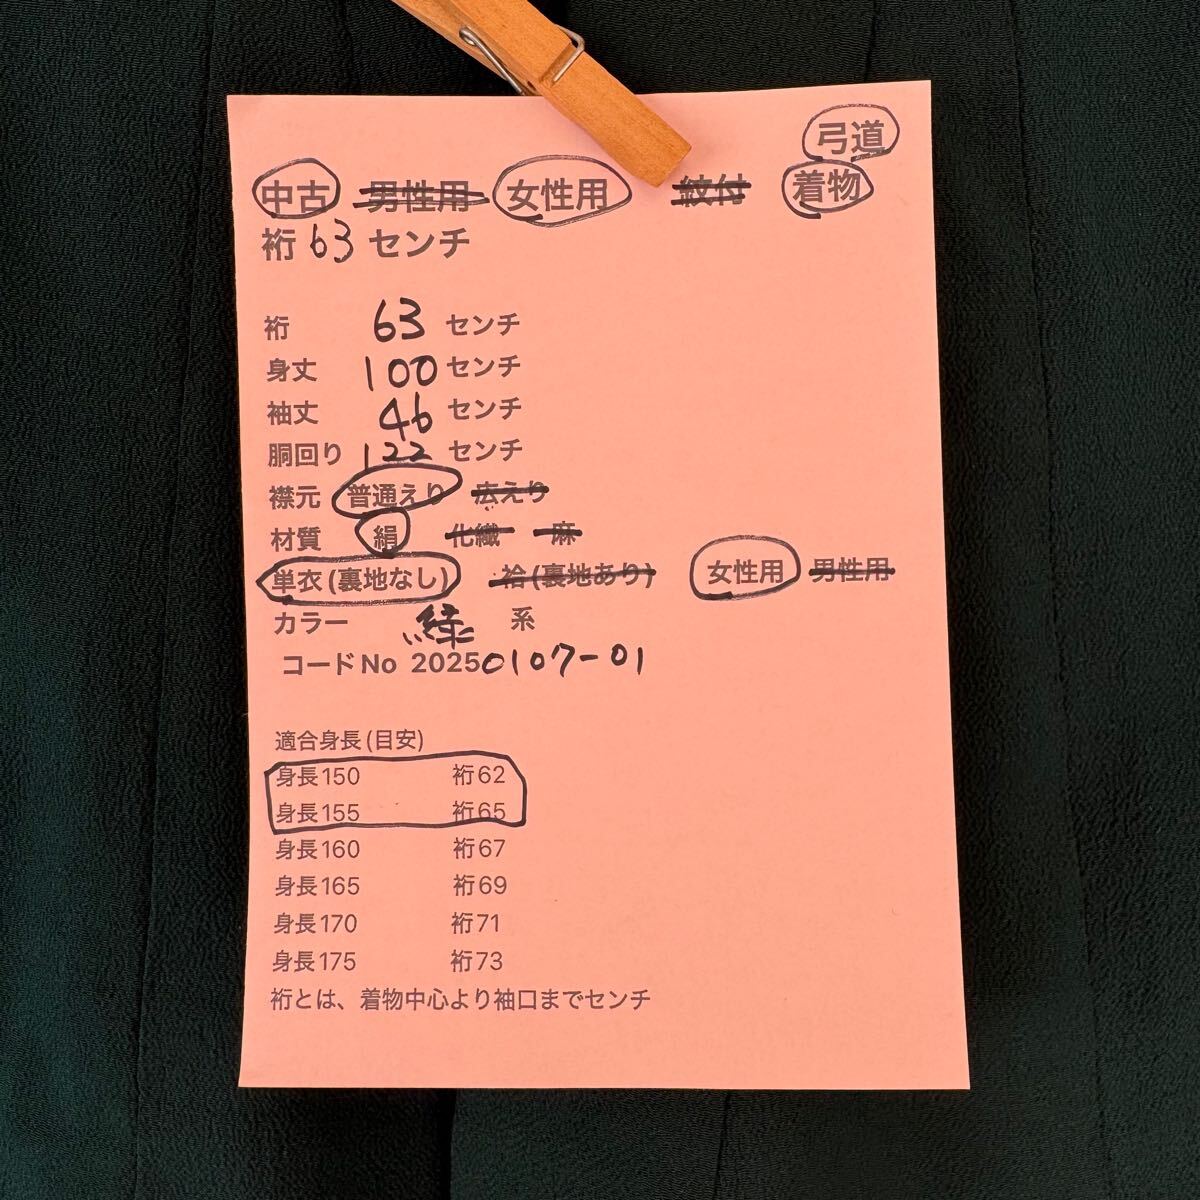 弓道
中古 男性用 女性用 紋付 着物
裄 63 センチ
裄 63 センチ
身丈 100 センチ
袖丈 46 センチ
胴回り 122 センチ
襟元 普通えり 広えり
材質 絹 化繊 麻
単衣(裏地なし) 袷(裏地あり) 女性用 男性用
カラー 緑 系
コードNo 20250107-01
適合身長(目安)
身長150 裄62
身長155 裄65
身長160 裄67
身長165 裄69
身長170 裄71
身長175 裄73
裄とは、着物中心より袖口までセンチ